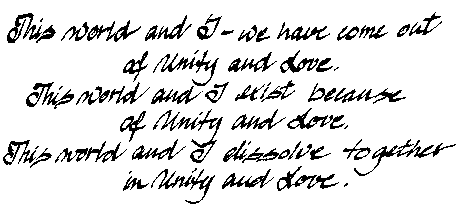 This world and I - we have come out
of Unity and Love.
This world and I exist because
of Unity and Love.
This world and I dissolve together
in Unity and Love.